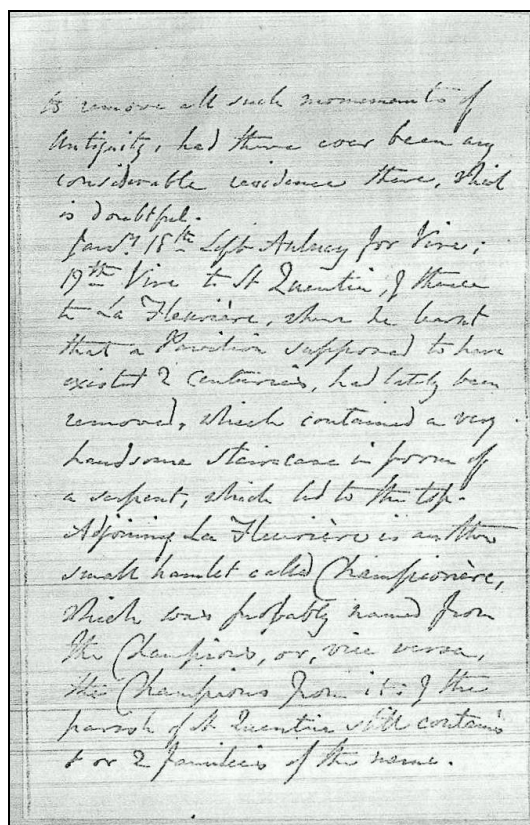 to remove all such monements of
Antiquity, had there ever been any
considerable residence there, which
is doubtful.
Jany. 18th Left Aulnay for Vire;
19th Vire to St Quentin, & thence
to La Fleurière, where he learnt
that a Pavilion supposed to have
existed 2 centuries, had lately been
removed, which contained a very
handsome staircase in form of
a serpent, which led to the top.
Adjoining La Fleurière is another
small hamlet called Championière,
which was probably named from
the Champions, or, vice versa,
the Champions from it; & the
parish of St Quentin still contains
1 or 2 families of the name.